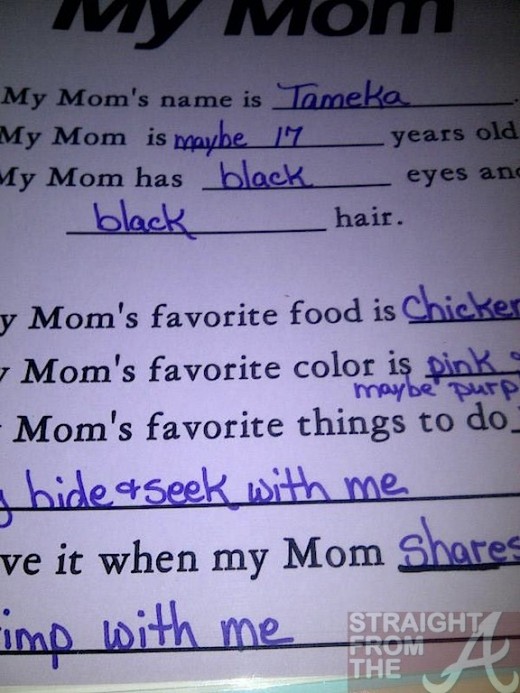 My Mom
My Mom's name is Tameka.
My Mom is maybe 17 years old
My Mom has black eyes and
black hair.
y Mom's favorite food is Chicken
y Mom's favorite color is pink &
maybe purp
Mom's favorite things to do
y hide & seek with me
ve it when my Mom Shares
imp with me
STRAIGHT
FROM
THE A